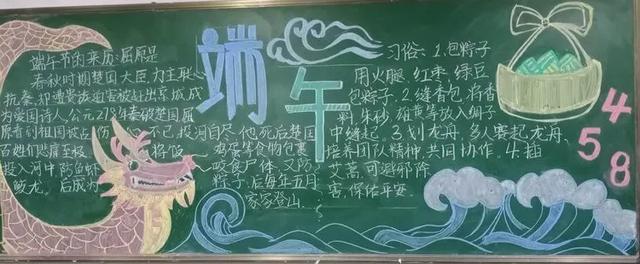 端午
端午节的来历:屈原是
春秋时期楚国大臣力主联
抗秦,却遭贵族迫害被赶出京城,成
为爱国诗人,公元278年秦破楚国屈
原看到祖国被占伤 不已,投河自尽,他死后楚国
百姓们悲痛至极 将饭 鸡蛋等食物包裹
投入河中防鱼虾 咬食尸体,又防
蛟龙。后成为 粽子,后每年五月
家家登山。
习俗:1.包粽子
用火腿、红枣、绿豆
包粽子.2.缝香包,将香
料,朱砂、雄黄等放入绸子
中缝起。3.划龙舟,多人赛起龙舟,
培养团队精神,共同协作。4.插
艾蒿,可避邪除
害,保佑平安
458